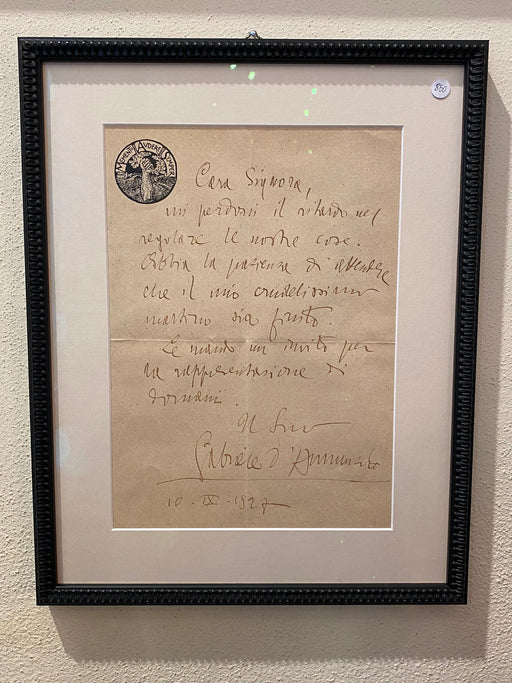 MEMENTO AVDERE SEMPER
850
Cara Signora,
mi perdoni il ritardo nel
regolare le nostre cose.
Abbia la pazienza di attendere
che il mio crudelissimo
martirio sia finito.
Le mando un invito per
la rappresentazione di
domani.
Il Suo
Gabriele d'Annunzio
10 - IX - 1927